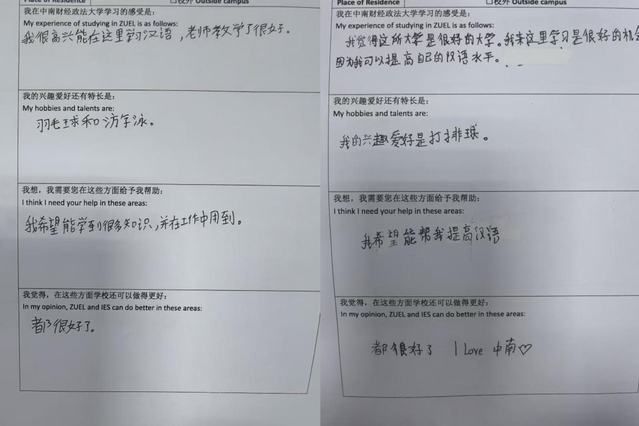 Place of Residence
□校外 Outside campus
我在中南财经政法大学学习的感受是:
My experience of studying in ZUEL is as follows:
我很高兴能在这里学习汉语,老师教学了很好。
我的兴趣爱好还有特长是:
My hobbies and talents are:
羽毛球和游泳。
我想,我需要您在这些方面给予我帮助:
I think I need your help in these areas:
我希望能学到很多知识,并在工作中用到。
我觉得,在这些方面学校还可以做得更好:
In my opinion, ZUEL and IES can do better in these areas:
都很好了。
Place of Residence
□校外 Outside campus
我在中南财经政法大学学习的感受是:
My experience of studying in ZUEL is as follows:
我觉得这所大学是很好的大学。我来这里学习是很好的机会
因为我可以提高自己的汉语水平。
我的兴趣爱好还有特长是:
My hobbies and talents are:
我的兴趣爱好是打排球。
我想,我需要您在这些方面给予我帮助:
I think I need your help in these areas:
我希望能帮我提高汉语
我觉得,在这些方面学校还可以做得更好:
In my opinion, ZUEL and IES can do better in these areas:
都很好了 I Love 中南♡